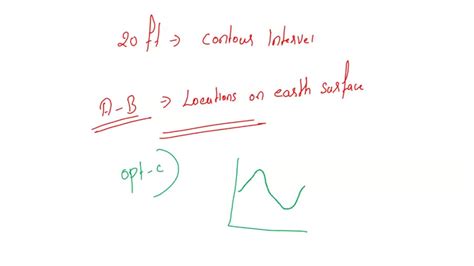 20 ft → Contour Interval
A-B → Locations on earth surface
opt-c)